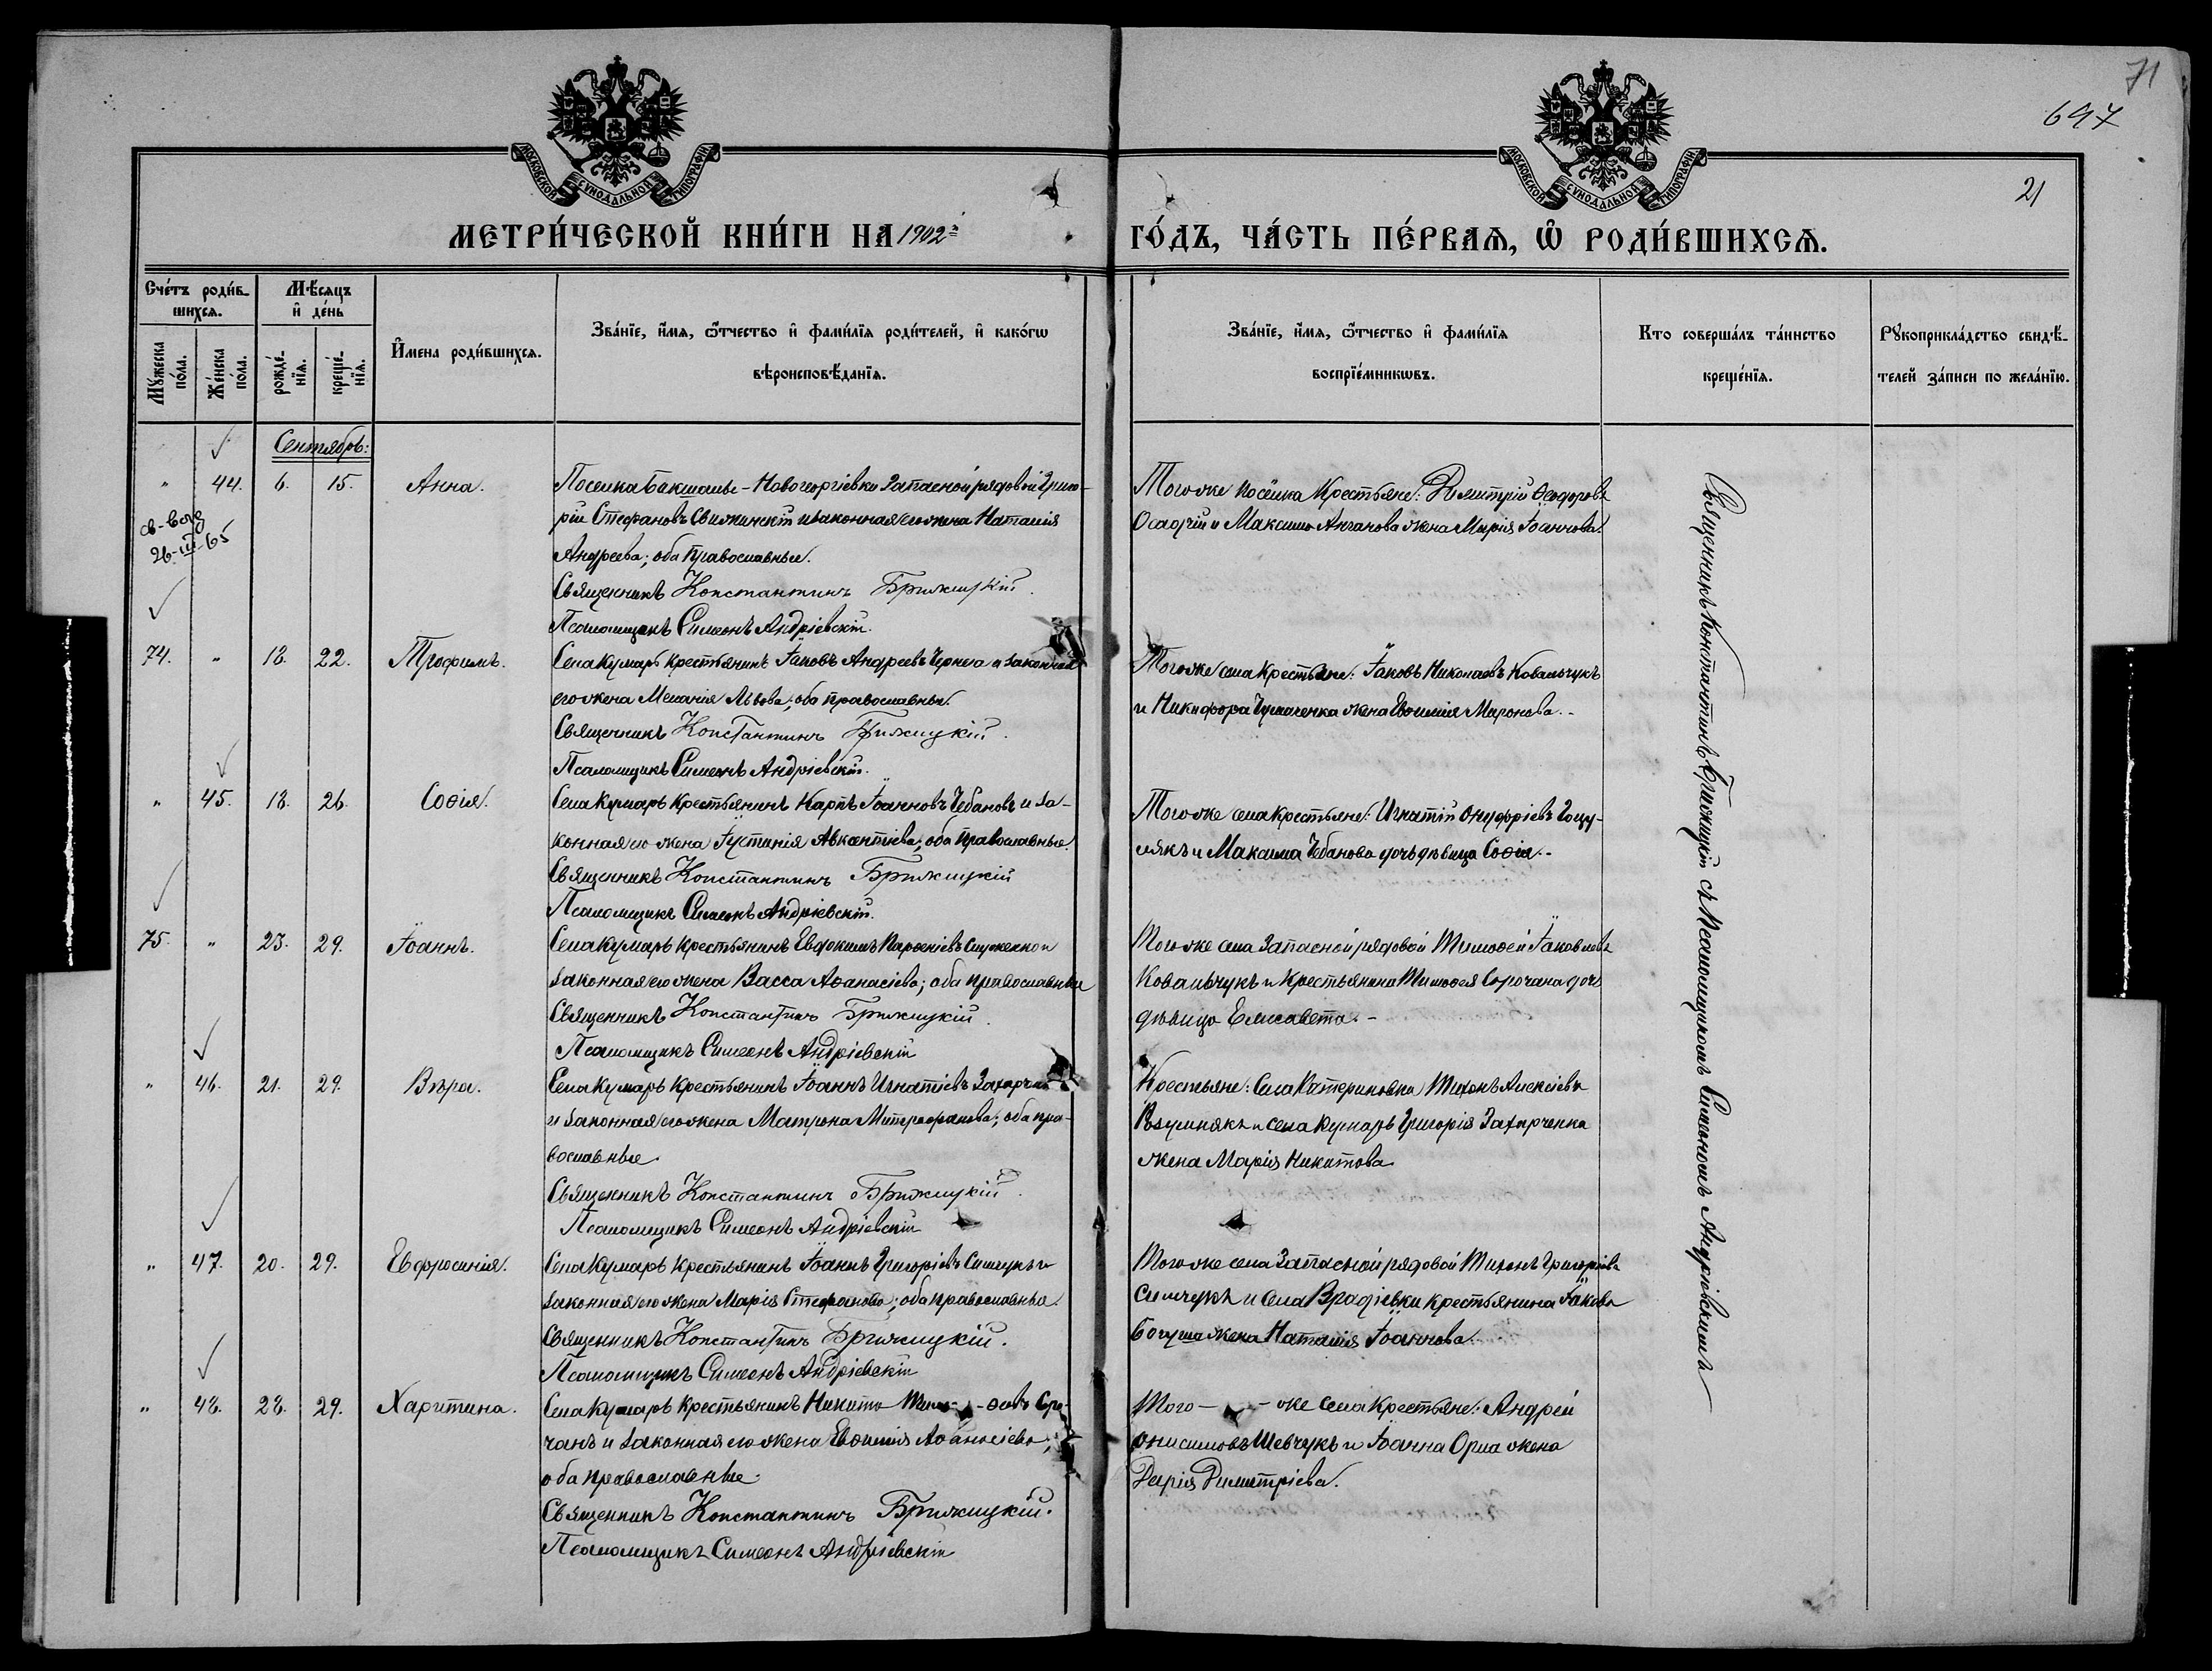 71
697
21
МОСКОВСКОЙ СѴНОДАЛЬНОЙ ТИПОГРАФІИ
МОСКОВСКОЙ СѴНОДАЛЬНОЙ ТИПОГРАФІИ
МЕТРИ́ЧЕСКОЙ КНИ́ГИ НА 1902й
ГО́ДЪ, ЧА́СТЬ ПЕ́РВАѦ, Ѽ РОДИ́ВШИХСѦ.
Сче́тъ роди́в-
шихсѧ.
Мѣ́сѧцъ
и҆ де́нь
Мꙋ́жеска по́ла.
Же́нска по́ла.
рожде́-
нїѧ.
креще́-
нїѧ.
И҆́мена роди́вшихсѧ.
Зва́нїе, и҆́мѧ, ѻ҆́тчество и҆ фами́лїѧ роди́телей, и҆ како́гѡ
вѣроисповѣ́данїѧ.
Зва́нїе, и҆́мѧ, ѻ҆́тчество и҆ фами́лїѧ
воспрїе́мникѡвъ.
Кто соверша́лъ та́инство
креще́нїѧ.
Рꙋкоприкла́дство свидѣ́-
телей за́писи по жела́нїю.
Сентябрь:
" 44. 6. 15. Анна.
Поселка Бакшалы-Новогеоргіевки Запасной рядовой Григо-
рій Стефановъ Свижинскій и законная его жена Наталія
Андреева; оба Православные.
Священникъ Константинъ Брижицкій.
Псаломщикъ Симеонъ Андріевскій.
Того же посёлка Крестьяне: Димитрій Ѳеодоровъ
Осадчій и Максима жена Марія Іоаннова.
св-во
26-III-65
74. " 18. 22. Трофимъ.
Села Кумарь крестьянинъ Іаковъ Андреевъ Чернега и законная
его жена Меланія Львова; оба православные.
Священникъ Константинъ Брижицкій.
Псаломщикъ Симеонъ Андріевскій.
Того же села крестьяне: Іаковъ Николаевъ Ковальчукъ
и Никифора Чумаченка жена Евѳимія Миронова.-
" 45. 18. 26. Софія.
Села Кумарь крестьянинъ Карпъ Іоанновъ Чебановъ и за-
конная его жена Іустинія Авксентіева; оба Православные.
Священникъ Константинъ Брижицкій
Псаломщикъ Симеонъ Андріевскій.
Того же села крестьяне: Игнатій Онуфріевъ Гоцу-
лякъ и Максима Чебанова дочь дѣвица Софія.-
75. " 23. 29. Іоаннъ.
Села Кумарь крестьянинъ Евдокимъ Парѳеніевъ и
законная его жена Васса Аѳанасіева; оба православные
Священникъ Константинъ Брижицкій.
Псаломщикъ Симеонъ Андріевскій
Того же села Запасной рядовой Тимоѳей Іаковлевъ
Ковальчукъ и Крестьянина Тимоѳея Сорочана дочь
дѣвица Елисавета.-
" 46. 21. 29. Вѣра.
Села Кумарь Крестьянинъ Іоаннъ Игнатіевъ
и законная его жена Матрона Митрофанова; оба пра-
вославные.
Священникъ Константинъ Брижицкій.
Псаломщикъ Симеонъ Андріевскій
Крестьяне: Села Катериновки Тихонъ Алексіевъ
и села Кумарь Григорія Захарченка
жена Марія Никитова
" 47. 20. 29. Евфросинія.
Села Кумарь крестьянинъ Іоаннъ Григоріевъ Симчукъ и
законная его жена Марія Стефанова; оба православные.
Священникъ Константинъ Брижицкій.
Псаломщикъ Симеонъ Андріевскій
Того же села Запасной рядовой Тихонъ Григоріевъ
Симчукъ и села Врадіевки крестьянина Іакова
Богуша жена Наталія Іоаннова.
" 48. 28. 29. Харитина.
Села Кумарь крестьянинъ Никита Тимо- -ѳеевъ Соро-
чанъ и законная его жена Евѳимія Аѳанасіева;
оба православные.
Священникъ Константинъ Брижицкій.
Псаломщикъ Симеонъ Андріевскій
Того - - же села крестьяне: Андрей
Онисимовъ Шевчукъ и Іоанна Орла жена
Дарія Димитріева.
Священникъ Константинъ Брижицкій съ Псаломщикомъ Симеономъ Андріевскимъ